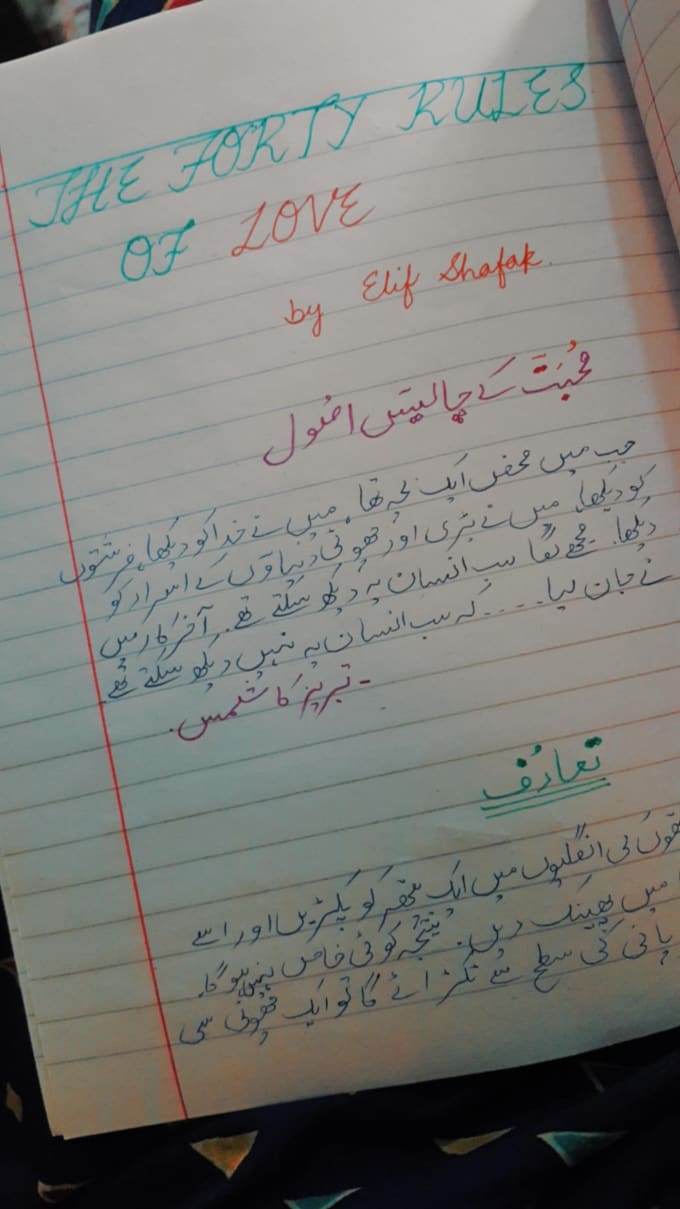 THE FORTY RULES
OF LOVE
by Elif Shafak.
محُبَتّ کے چالیس اصُول
جب میں محض ایک بچہ تھا، میں نے خدا کو دیکھا، فرشتوں
کو دیکھا، میں نے بڑی اور چھوٹی دنیاؤں کے اسرار کو
دیکھا۔ مجھے لگا سب انسان یہ دیکھ سکتے تھے۔ آخرکار میں
نے جان لیا۔۔۔۔ کہ سب انسان یہ نہیں دیکھ سکتے تھے
- تبریز کا شمس۔
تعارُف
کی انگلیوں میں ایک پتھر کو پکڑیں اور اسے
میں پھینک دیں۔ نتیجہ کوئی خاص نہیں ہو گا۔
پانی کی سطح سے ٹکرائے گا تو ایک چھوٹی سی